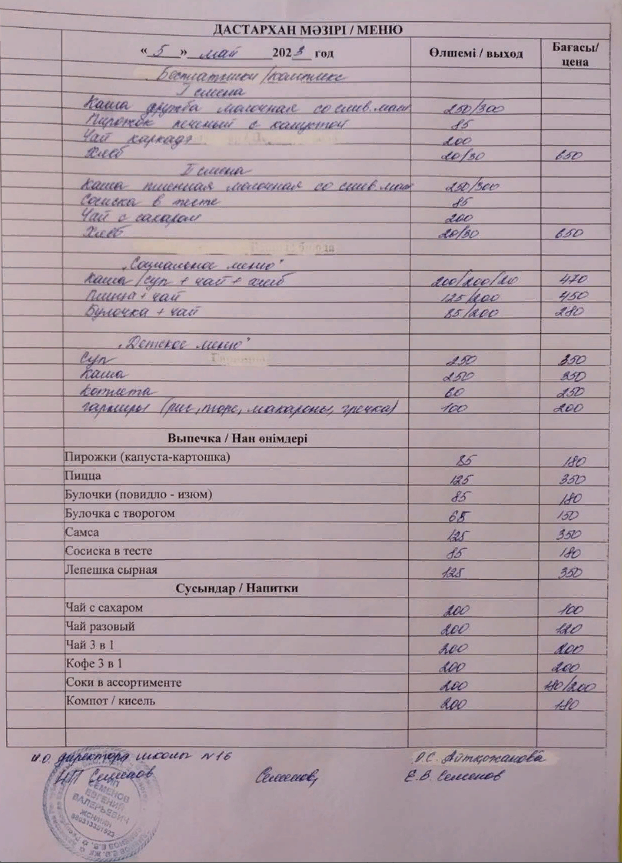 ДАСТАРХАН МӘЗІРІ / МЕНЮ
« 5 » май 2023 год Өлшемі / выход Бағасы/ цена
Бесплатники/комплекс
I смена
Каша дружба молочная со слив. мас 250/300
Пирожок печеный с капустой 85
Чай каркадэ 200
Хлеб 20/30 650
II смена
Каша пшенная молочная со слив. мас 250/300
Сосиска в тесте 85
Чай с сахаром 200
Хлеб 20/30 650
„Социальное меню"
Каша/суп + чай + хлеб 200/200/20 470
Пицца + чай 125/200 450
Булочка + чай 85/200 280
„Детское меню"
Суп 250 350
Каша 250 350
Котлета 60 250
гарниры (рис, пюре, макароны, гречка) 100 200
Выпечка / Нан өнімдері
Пирожки (капуста-картошка) 85 180
Пицца 125 350
Булочки (повидло - изюм) 85 180
Булочка с творогом 65 150
Самса 125 350
Сосиска в тесте 85 180
Лепешка сырная 125 350
Сусындар / Напитки
Чай с сахаром 200 100
Чай разовый 200 120
Чай 3 в 1 200 200
Кофе 3 в 1 200 200
Соки в ассортименте 200 180/200
Компот / кисель 200 180
и.о. директора школы №16 О.С. Айтқожанова
ИП Семенов Семенов Е.В. Семенов
ИП
СЕМЕНОВ
ЕВГЕНИЙ
ВАЛЕРЬЕВИЧ